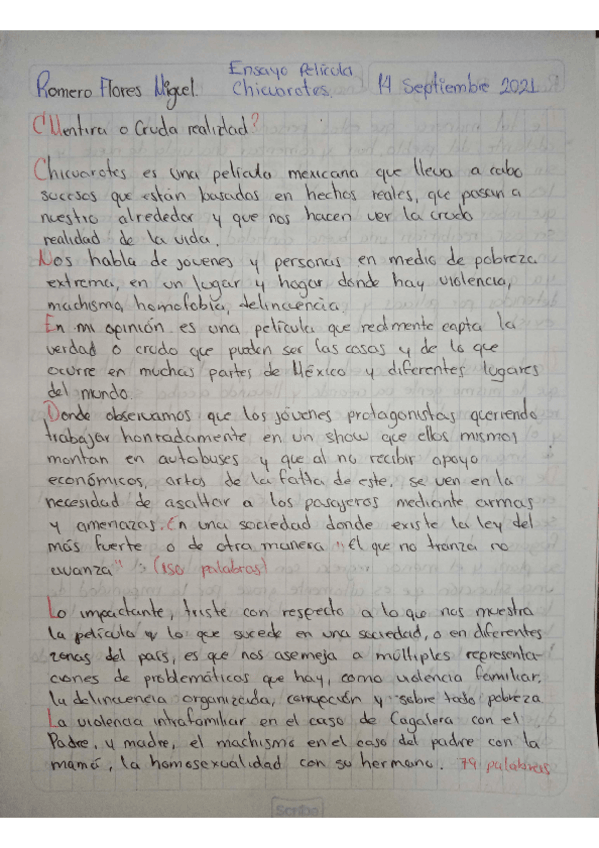 Romero Flores Miguel. Ensayo Película Chicuarotes. 14 Septiembre 2021
¿Mentira o Cruda realidad?
Chicuarotes es una película mexicana que lleva a cabo
sucesos que están basados en hechos reales, que pasan a
nuestro alrededor y que nos hacen ver la crudo
realidad de la vida.
Nos habla de jovenes y personas en medio de pobreza
extrema, en un lugar y hogar donde hay violencia,
machismo, homofobia, delincuencia.
En mi opinión es una película que realmente capta la
verdad o crudo que pueden ser las cosas y de lo que
ocurre en muchas partes de México y diferentes lugares
del mundo.
Donde observamos que los jóvenes protagonistas queriendo
trabajar honradamente en un show que ellos mismos
montan en autobuses y que al no recibir apoyo
económicos, artos de la falta de este, se ven en la
necesidad de asaltar a los pasajeros mediante armas
y amenazas. En una sociedad donde existe la ley del
más fuerte o de otra manera "El que no tranza no
avanza" (150 palabras)
Lo impactante, triste con respecto a lo que nos muestra
la película y lo que sucede en una sociedad, o en diferentes
zonas del país, es que nos asemeja a múltiples representa-
ciones de problemáticas que hay, como violencia familiar,
la delincuencia organizada, corrupción y sobre todo pobreza
La violencia intrafamiliar en el caso de Cagalera con el
Padre, y madre, el machismo en el caso del padre con la
mamá, la homosexualidad con su hermano. 79 palabras
Scribe